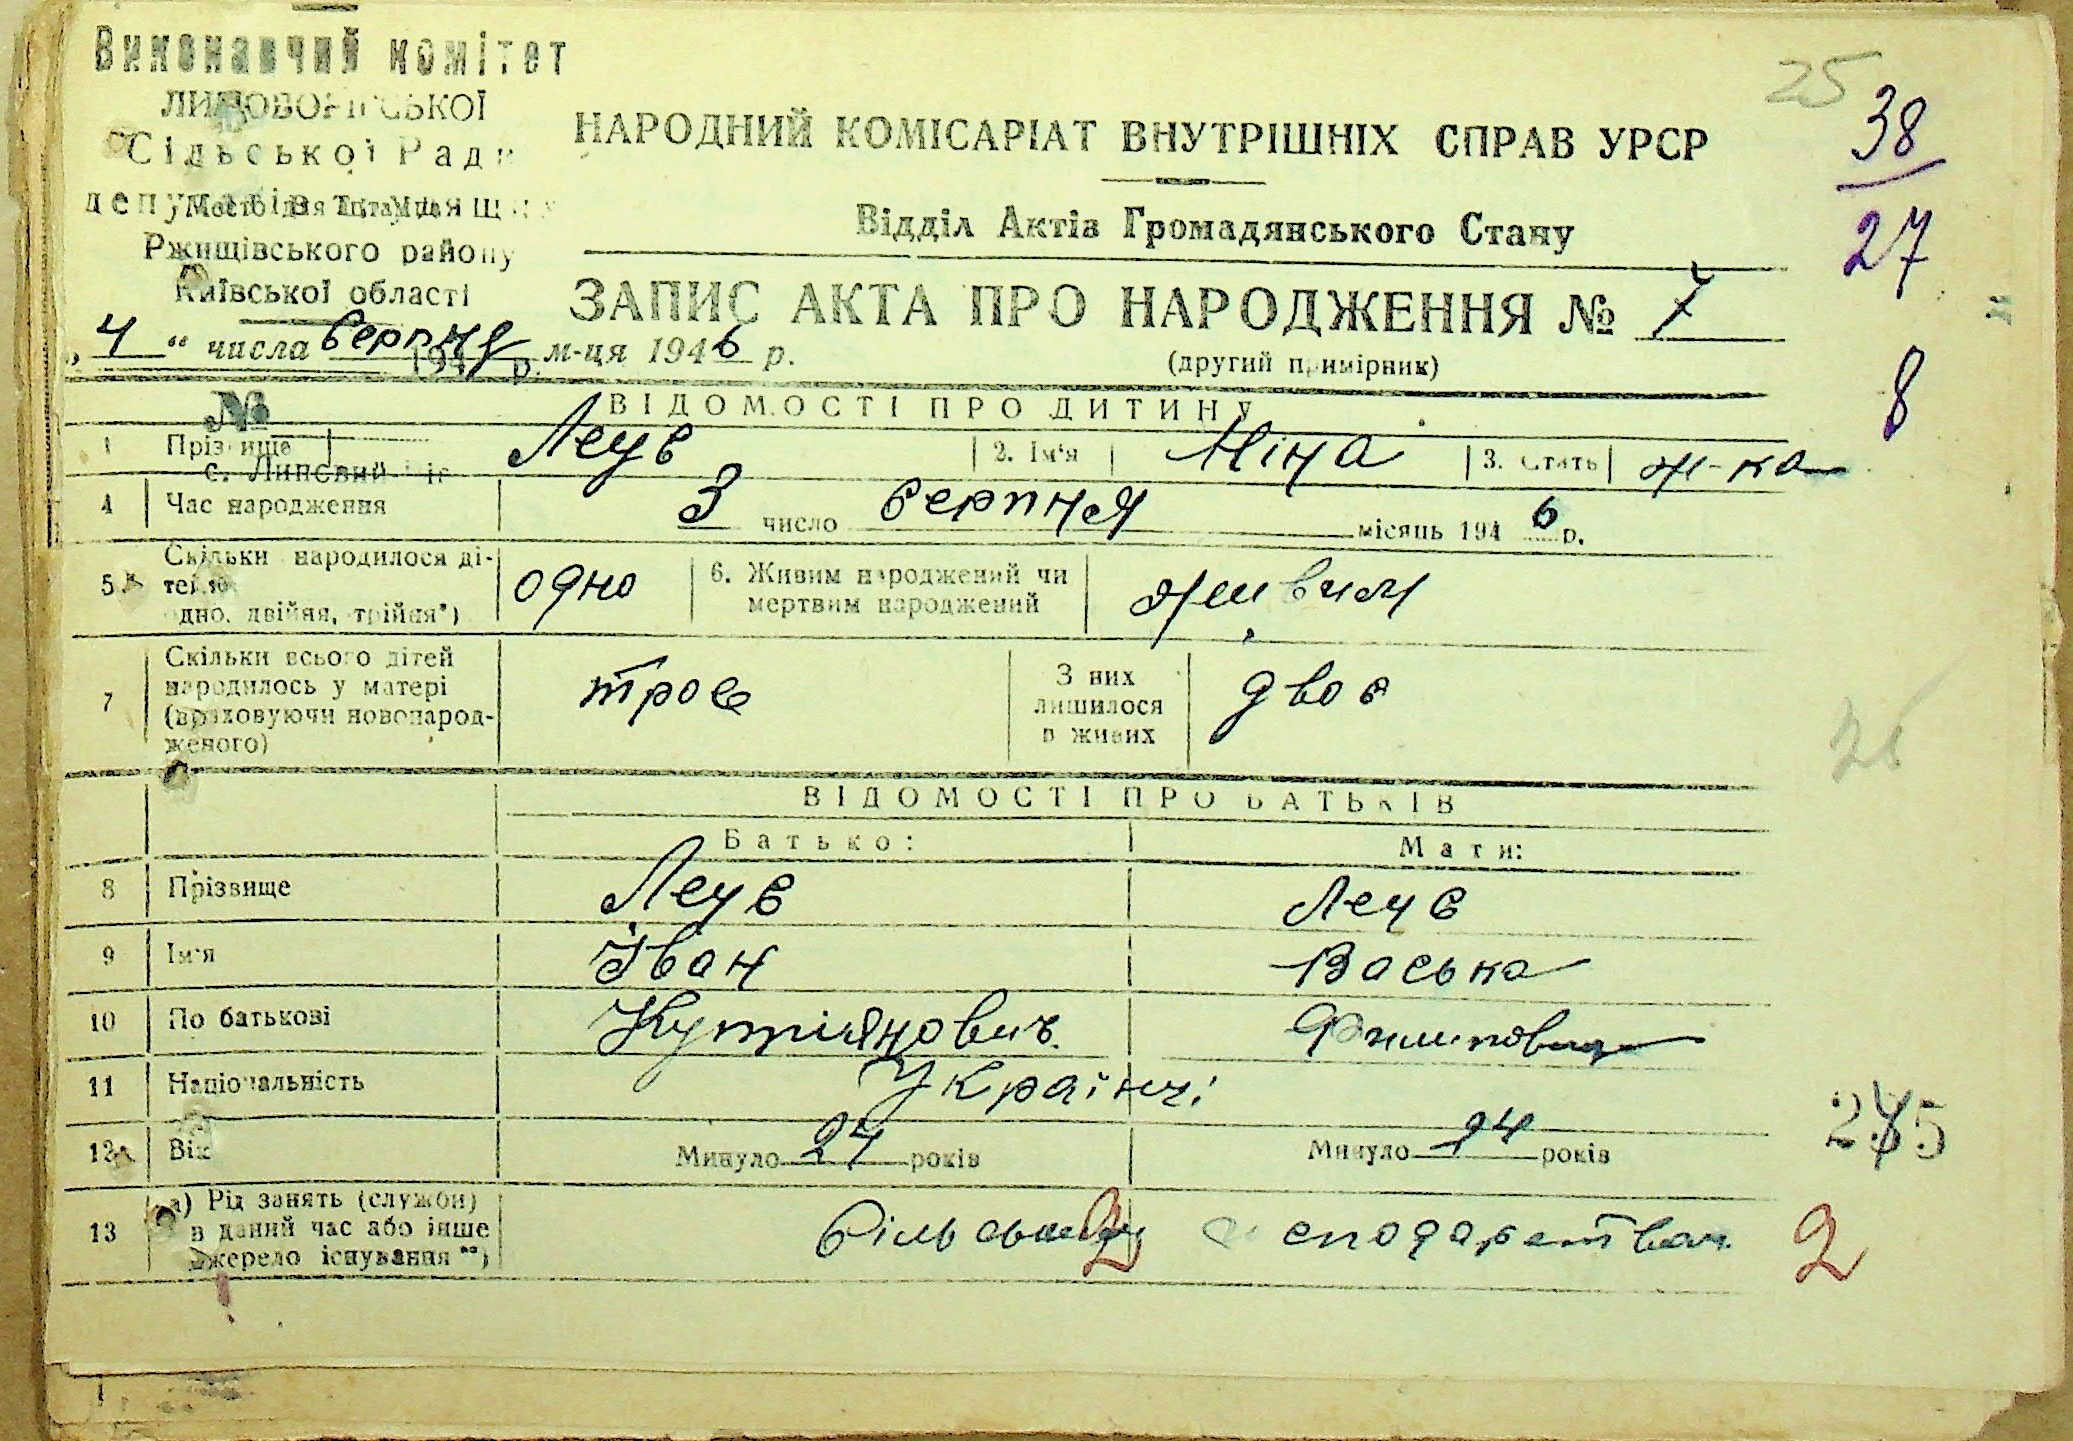 25
38
27
8
Виконавчий комітет
ЛИПОВОРІГСЬКОЇ
Сільської Ради
депутатів трудящих
Місце для штампа
Ржищівського району
Київської області
НАРОДНИЙ КОМІСАРІАТ ВНУТРІШНІХ СПРАВ УРСР
Відділ Актів Громадянського Стану
ЗАПИС АКТА ПРО НАРОДЖЕННЯ № 7
(другий примірник)
„ 4 “ числа серпня м-ця 1946 р.
194 р.
№
с. Липовий ріг
ВІДОМОСТІ ПРО ДИТИНУ
1 Прізвище Леус 2. Ім'я Ніна 3. Стать ж-ка
4 Час народження 3 число серпня місяць 1946 р.
5 Скільки народилося ді-
тей
одно, двійня, трійня*) одно 6. Живим народжений чи
мертвим народжений живим
7 Скільки всього дітей
народилось у матері
(враховуючи новонарод-
женого) троє З них
лишилося
в живих двоє
ВІДОМОСТІ ПРО БАТЬКІВ
Батько: Мати:
8 Прізвище Леус Леус
9 Ім'я Іван Васька
10 По батькові Купріянович
11 Національність Українці
12 Вік Минуло 24 років Минуло 24 років
13 а) Рід занять (служби)
в даний час або інше
джерело існування **)
2
2